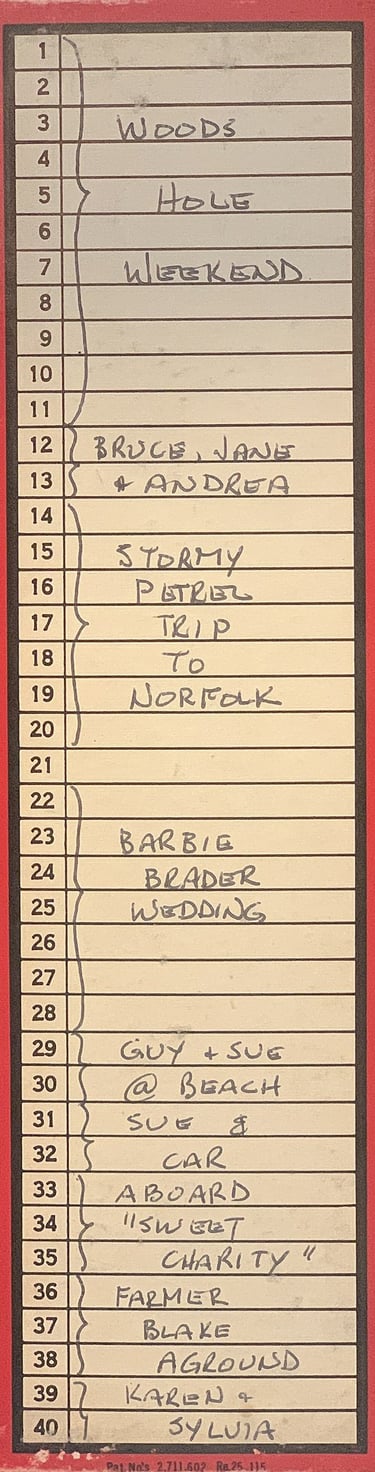 1
2
3 WOODS
4
5 HOLE
6
7 WEEKEND
8
9
10
11
12 BRUCE, JANE
13 & ANDREA
14
15 STORMY
16 PETREL
17 TRIP
18 TO
19 NORFOLK
20
21
22
23 BARBIE
24 BRADER
25 WEDDING
26
27
28
29 GUY + SUE
30 @ BEACH
31 SUE &
32 CAR
33 ABOARD
34 "SWEET
35 CHARITY"
36 FARMER
37 BLAKE
38 AGROUND
39 KAREN &
40 SYLVIA
Pat. No's 2,711,602 Re.25,115